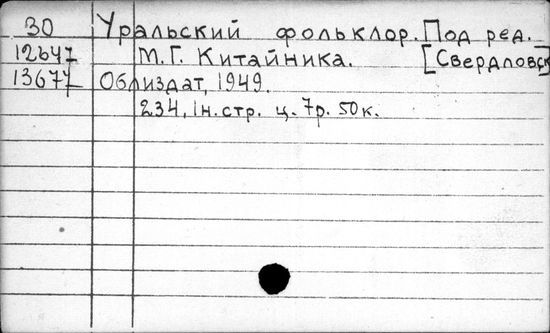 30 Уральский фольклор. Под ред.
12647 М.Г. Китайника. [Свердловск]
13677 Облиздат, 1949.
234, 1н.стр. ц. 7р. 50к.